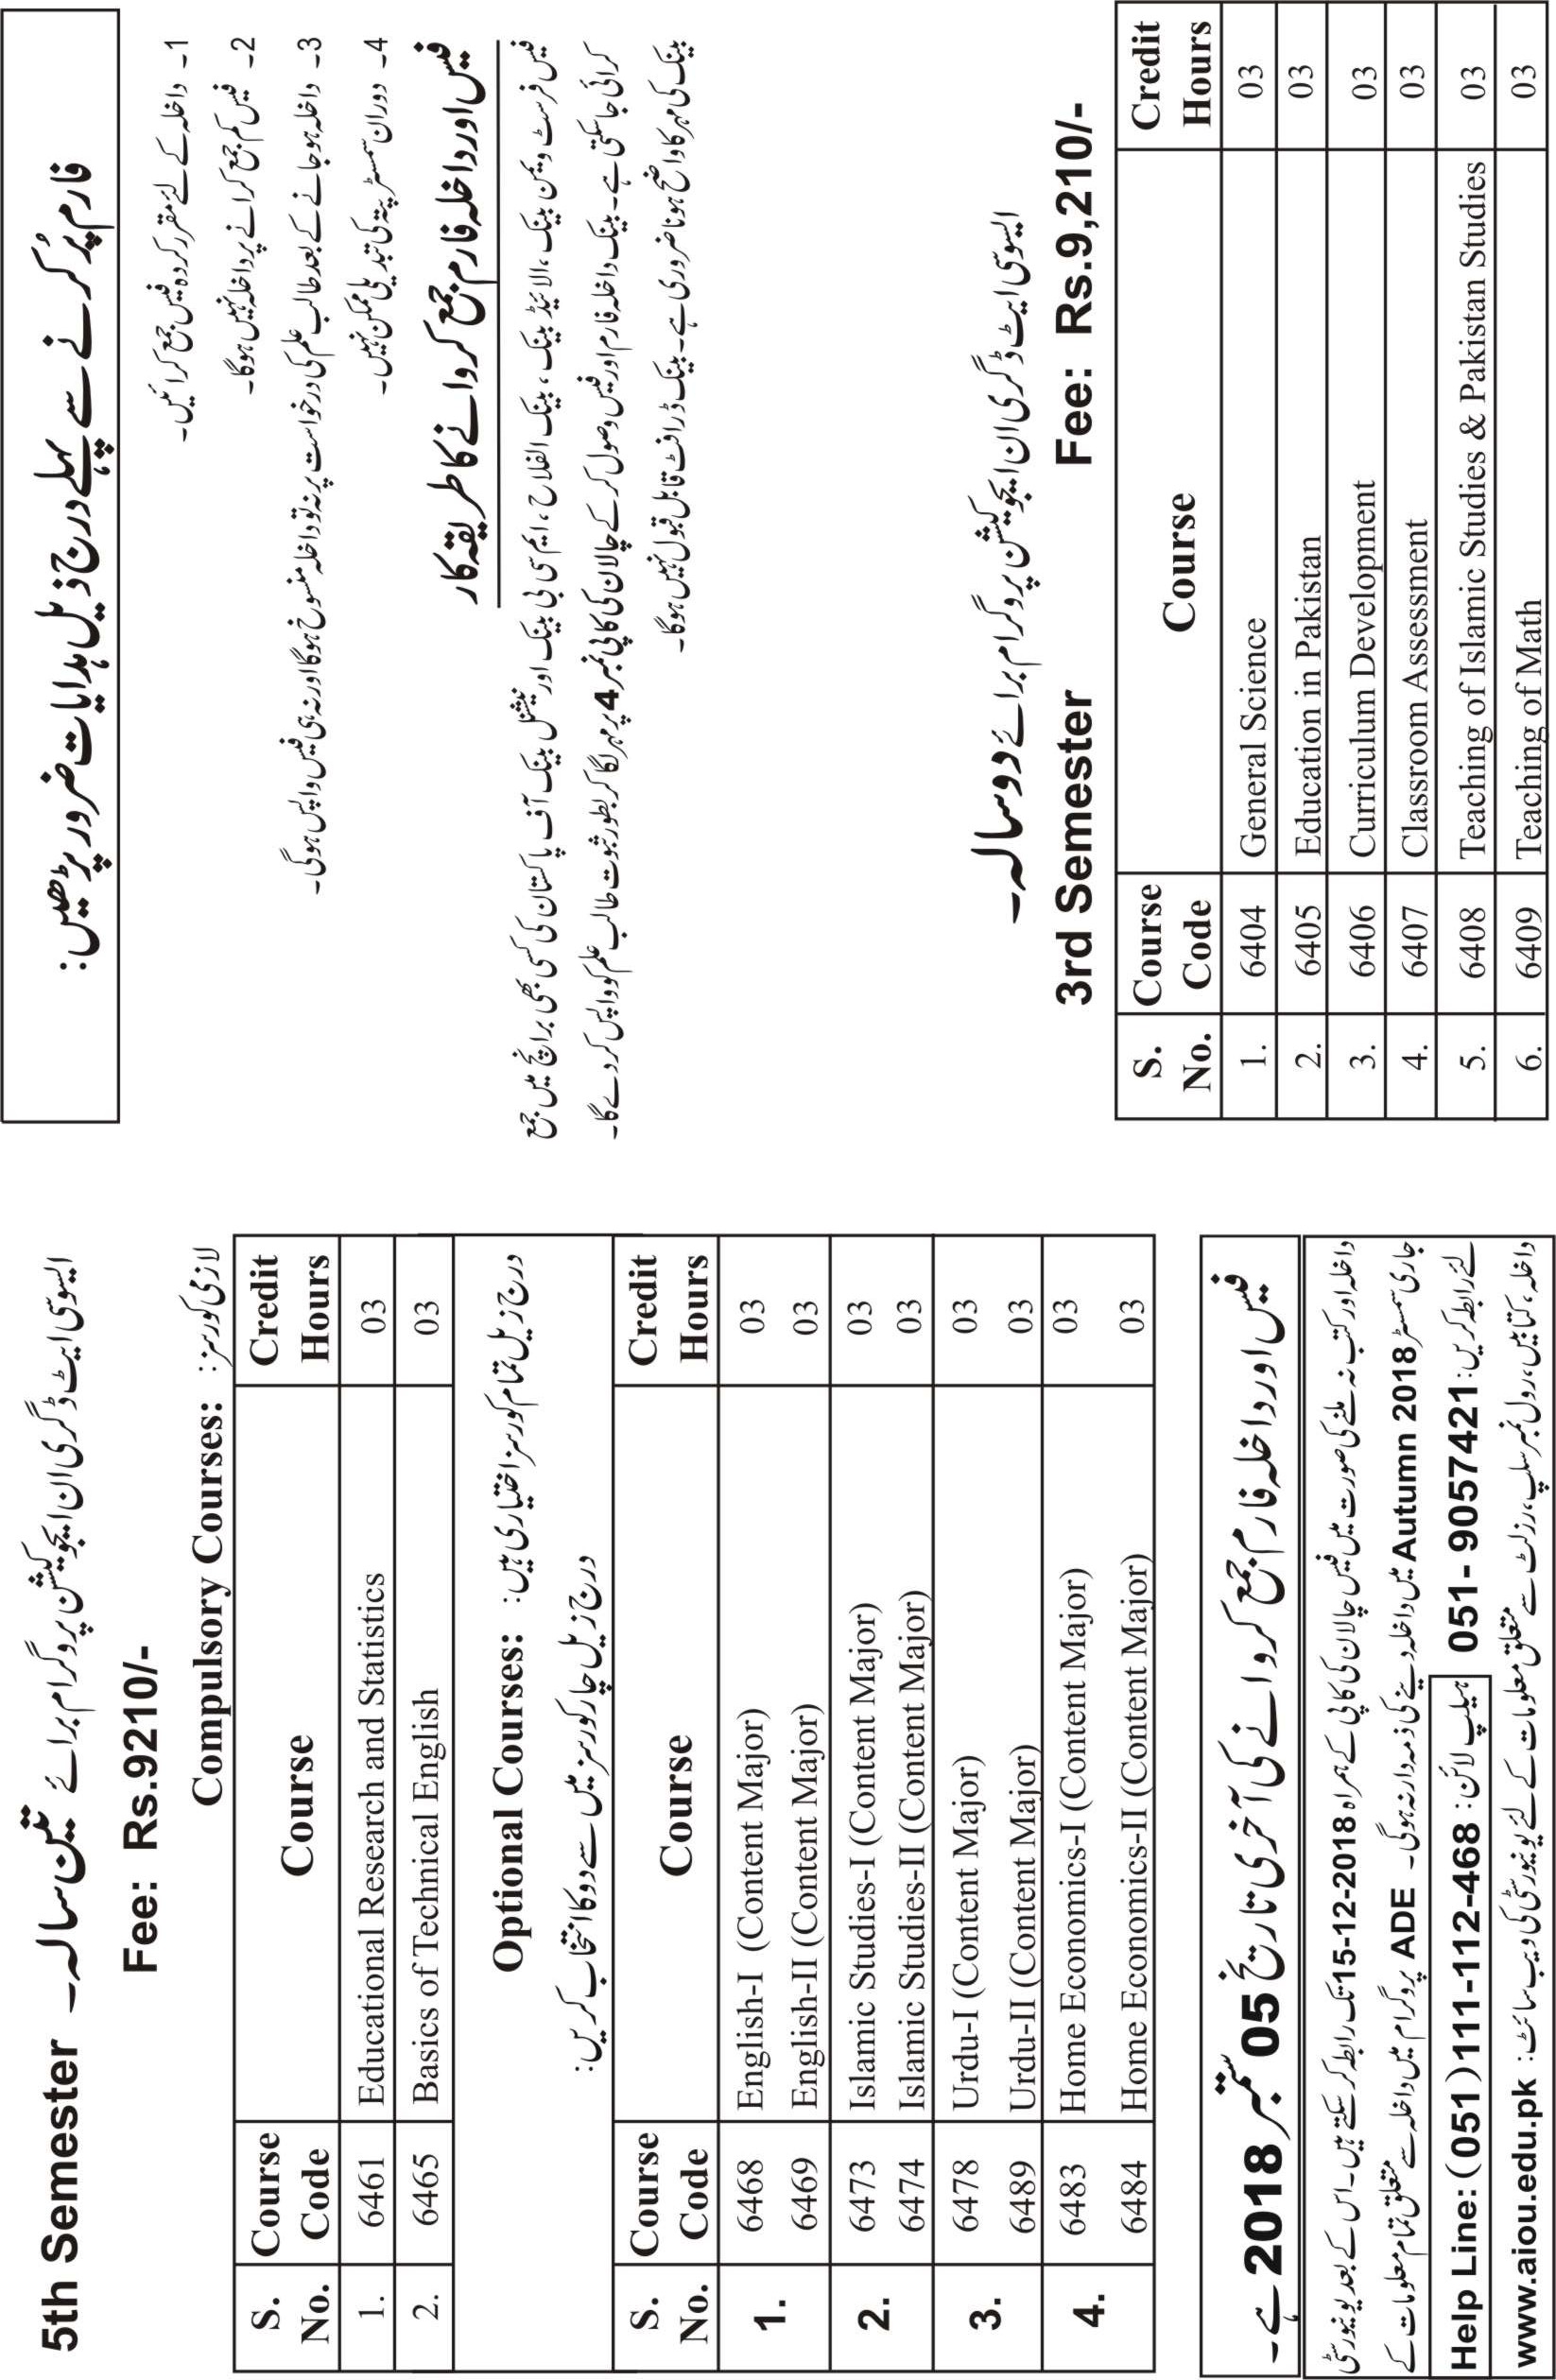 فارم پُر کرنے سے پہلے درج ذیل ہدایات ضرور پڑھیں:
1۔ داخلہ کے لئے مقرر کردہ فیس جمع کرائیں۔
2۔ فیس کم جمع کرانے پر داخلہ نہیں ہوگا۔
3۔ داخلہ ہوجانے کے بعد طالب علم کی درخواست پر نہ تو داخلہ منسوخ ہوگا اور نہ ہی فیس واپس ہوگی۔
4۔ دوران سمسٹر پتہ کی تبدیلی ممکن نہیں۔
فیس اور داخلہ فارم جمع کروانے کا طریقہ کار
فیس فرسٹ ویمن بینک، الائیڈ بینک، بینک الفلاح، ایم سی بی بینک اور نیشنل بینک آف پاکستان کی کسی بھی برانچ میں جمع
کرائی جاسکتی ہے۔ بینک داخلہ فارم اور فیس وصول کرکے چالان کی کاپی نمبر 4 پر مہر لگا کر بطور ثبوت طالب علم کو واپس کردے گا۔
بینک کی مہر کا واضح ہونا ضروری ہے۔ بینک ڈرافٹ قابل قبول نہیں ہوگا۔
ایسوسی ایٹ ڈگری ان ایجوکیشن پروگرام برائے دوسالہ۔
3rd Semester Fee: Rs.9,210/-
S. No. Course Code Course Credit Hours
1. 6404 General Science 03
2. 6405 Education in Pakistan 03
3. 6406 Curriculum Development 03
4. 6407 Classroom Assessment 03
5. 6408 Teaching of Islamic Studies & Pakistan Studies 03
6. 6409 Teaching of Math 03
5th Semester ایسوسی ایٹ ڈگری ان ایجوکیشن پروگرام برائے تین سالہ۔
Fee: Rs.9210/-
Compulsory Courses: لازمی کورسز:
S. No. Course Code Course Credit Hours
1. 6461 Educational Research and Statistics 03
2. 6465 Basics of Technical English 03
Optional Courses: درج زیل تمام کورسز اختیاری ہیں:
درج زیل چار کورسز میں سے دو کا انتخاب کریں:
S. No. Course Code Course Credit Hours
1. 6468 English-I (Content Major) 03
6469 English-II (Content Major) 03
2. 6473 Islamic Studies-I (Content Major) 03
6474 Islamic Studies-II (Content Major) 03
3. 6478 Urdu-I (Content Major) 03
6489 Urdu-II (Content Major) 03
4. 6483 Home Economics-I (Content Major) 03
6484 Home Economics-II (Content Major) 03
فیس اور داخلہ فارم جمع کروانے کی آخری تاریخ 05 ستمبر 2018 ہے۔
داخلہ اور کتب نہ ملنے کی صورت میں فیس چالان کی کاپی کے ہمراہ 15-12-2018 تک رابطہ کرسکتے ہیں۔ اس کے بعد یونیورسٹی
جاری سمسٹر Autumn 2018 میں داخلہ دینے کی ذمہ دار نہ ہوگی۔ ADE پروگرام میں داخلہ سے متعلق تمام معلومات کے
لئے رابطہ کریں: 051- 9057421 ہیلپ لائن: Help Line: (051)111-112-468
داخلہ، کتابیں، رول نمبر سلپ، رزلٹ سے متعلق معلومات کے لئے یونیورسٹی کی ویب سائٹ: www.aiou.edu.pk